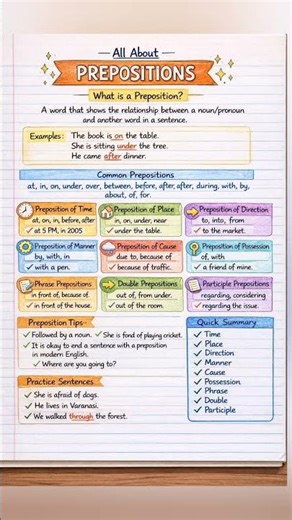 All About
PREPOSITIONS
What is a Preposition?
A word that shows the relationship between a noun/pronoun
and another word in a sentence.
Examples: The book is on the table.
She is sitting under the tree.
He came after dinner.
Common Prepositions
at, in, on, under, over, between, before, after, after, during, with, by,
about, of, for.
Preposition of Time
at, on, in, before, after
✓ at 5 PM, in 2005
Preposition of Place
in, on, under, near
✓ under the table.
Preposition of Direction
to, into, from
✓ to the market.
Preposition of Manner
by, with, in
✓ with a pen.
Preposition of Cause
due to, because of
✓ because of traffic.
Preposition of Possession
of, with
✓ a friend of mine.
Phrase Prepositions
in front of, because of.
✓ in front of the house.
Double Prepositions
out of, from under.
✓ out of the room.
Participle Prepositions
regarding, considering
✓ regarding the issue.
Preposition Tips
✓ Followed by a noun. ✓ She is fond of playing cricket.
✓ It is okay to end a sentence with a preposition
in modern English.
✓ Where are you going?
Practice Sentences
✓ She is afraid of dogs.
✓ He lives in Varanasi.
✓ We walked through the forest.
Quick Summary
✓ Time
✓ Place
✓ Direction
✓ Manner
✓ Cause
✓ Possession
✓ Phrase
✓ Double
✓ Participle